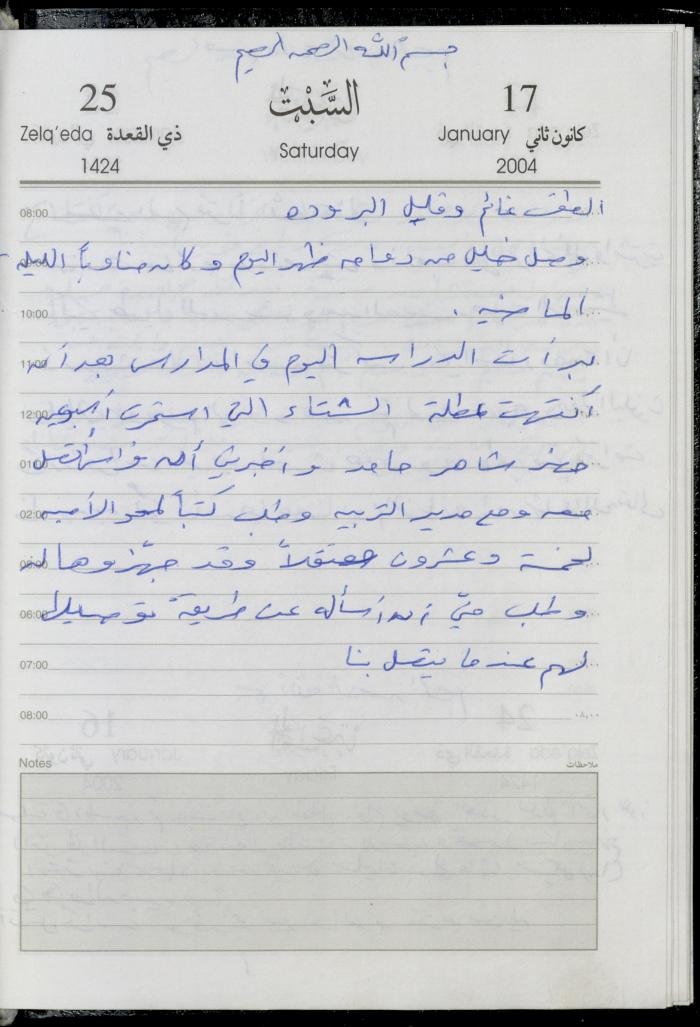 بسم الله الرحمن الرحيم
25 السَّبْت 17
Zelq'eda ذي القعدة Saturday January كانون ثاني
1424 2004
08:00 الطقس غائم وقليل البروده
وصل خليل من دوامه ظهر اليوم وكان مناوباً الليله
10:00 الماضيه .
11:00 بدأت الدراسه اليوم في المدارس بعد أن
12:00 أنتهت عطلة الشتاء التي استمرت أسبوعين
01:00 شاهر حامد وأخبرني أن فراس أتصل
02:00 معه ومع مدير التربيه وطلب كتباً لمحو الأميه
لخمسة وعشرون معتقلاً وقد جهّزوها له
06:00 وطلب منّي أن أسأله عن طريقة توصيلها
07:00 لهم عندما يتصل بنا
08:00 ٠٨,٠٠
Notes ملاحظات